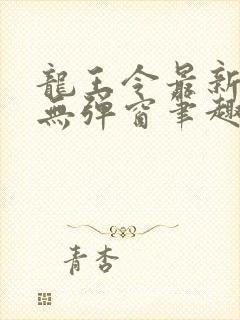 龍王令最新
無彈窗筆趣
青杏